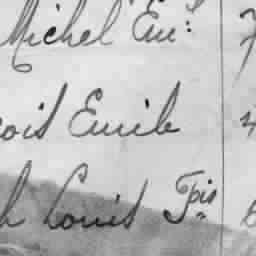 Michel Em:
ois Emile
h Louis Fçis